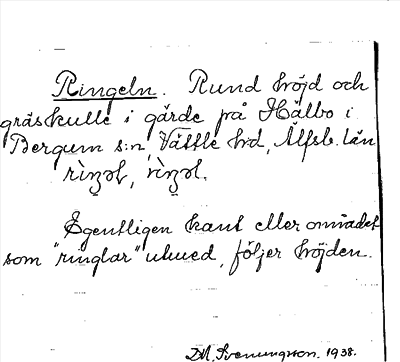 Ringeln. Rund höjd och
gräskulle i gärde på Hälbo i
Bergum s:n, Vättle hd, Älfsb. län
Egentligen kant eller området
som "ringlar" uluved, följer höjden.
D.A. Svenungson. 1938.